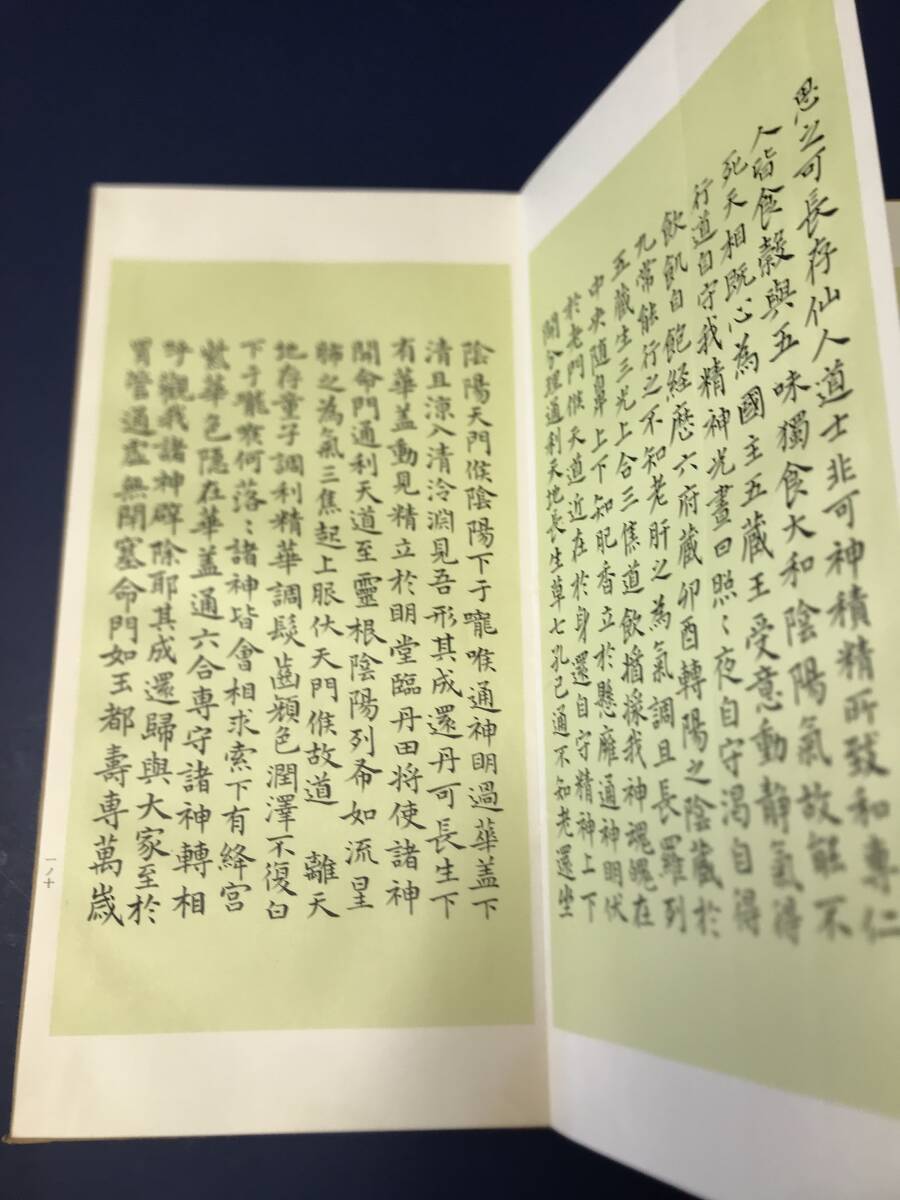 思之可長存仙人道士非可神積精所致和專仁
人皆食穀與五味獨食大和陰陽氣故能不
死天相既心為國主五藏王受意動靜氣得
行道自守我精神光晝日照〻夜自守渴自得
飲飢自飽經歷六府藏卯酉轉陽之陰藏於
九常能行之不知老肝之為氣調且長羅列
五藏生三光上合三焦道飲搚採我神魂魄在
中央随鼻上下知肥香立於懸癰通神明伏
於老門候天道近在於身還自守精神上下
開分理通利天地長生草七孔已通不知老還坐
陰陽天門候陰陽下于嚨喉通神明過華盖下
清且涼入清泠淵見吾形其成還丹可長生下
有華盖動見精立於明堂臨丹田将使諸神
開命門通利天道至靈根陰陽列布如流星
肺之為氣三焦起上眼伏天門候故道 離天
地存童子調利精華調髮齒顏色潤澤不復白
下于嚨喉何落〻諸神皆會相求索下有絳宮
紫華色隱在華盖通六合專守諸神轉相
呼觀我諸神辟除耶其成還歸與大家至於
胃管通虛無閉塞命門如玉都壽專萬歲
一ノ十